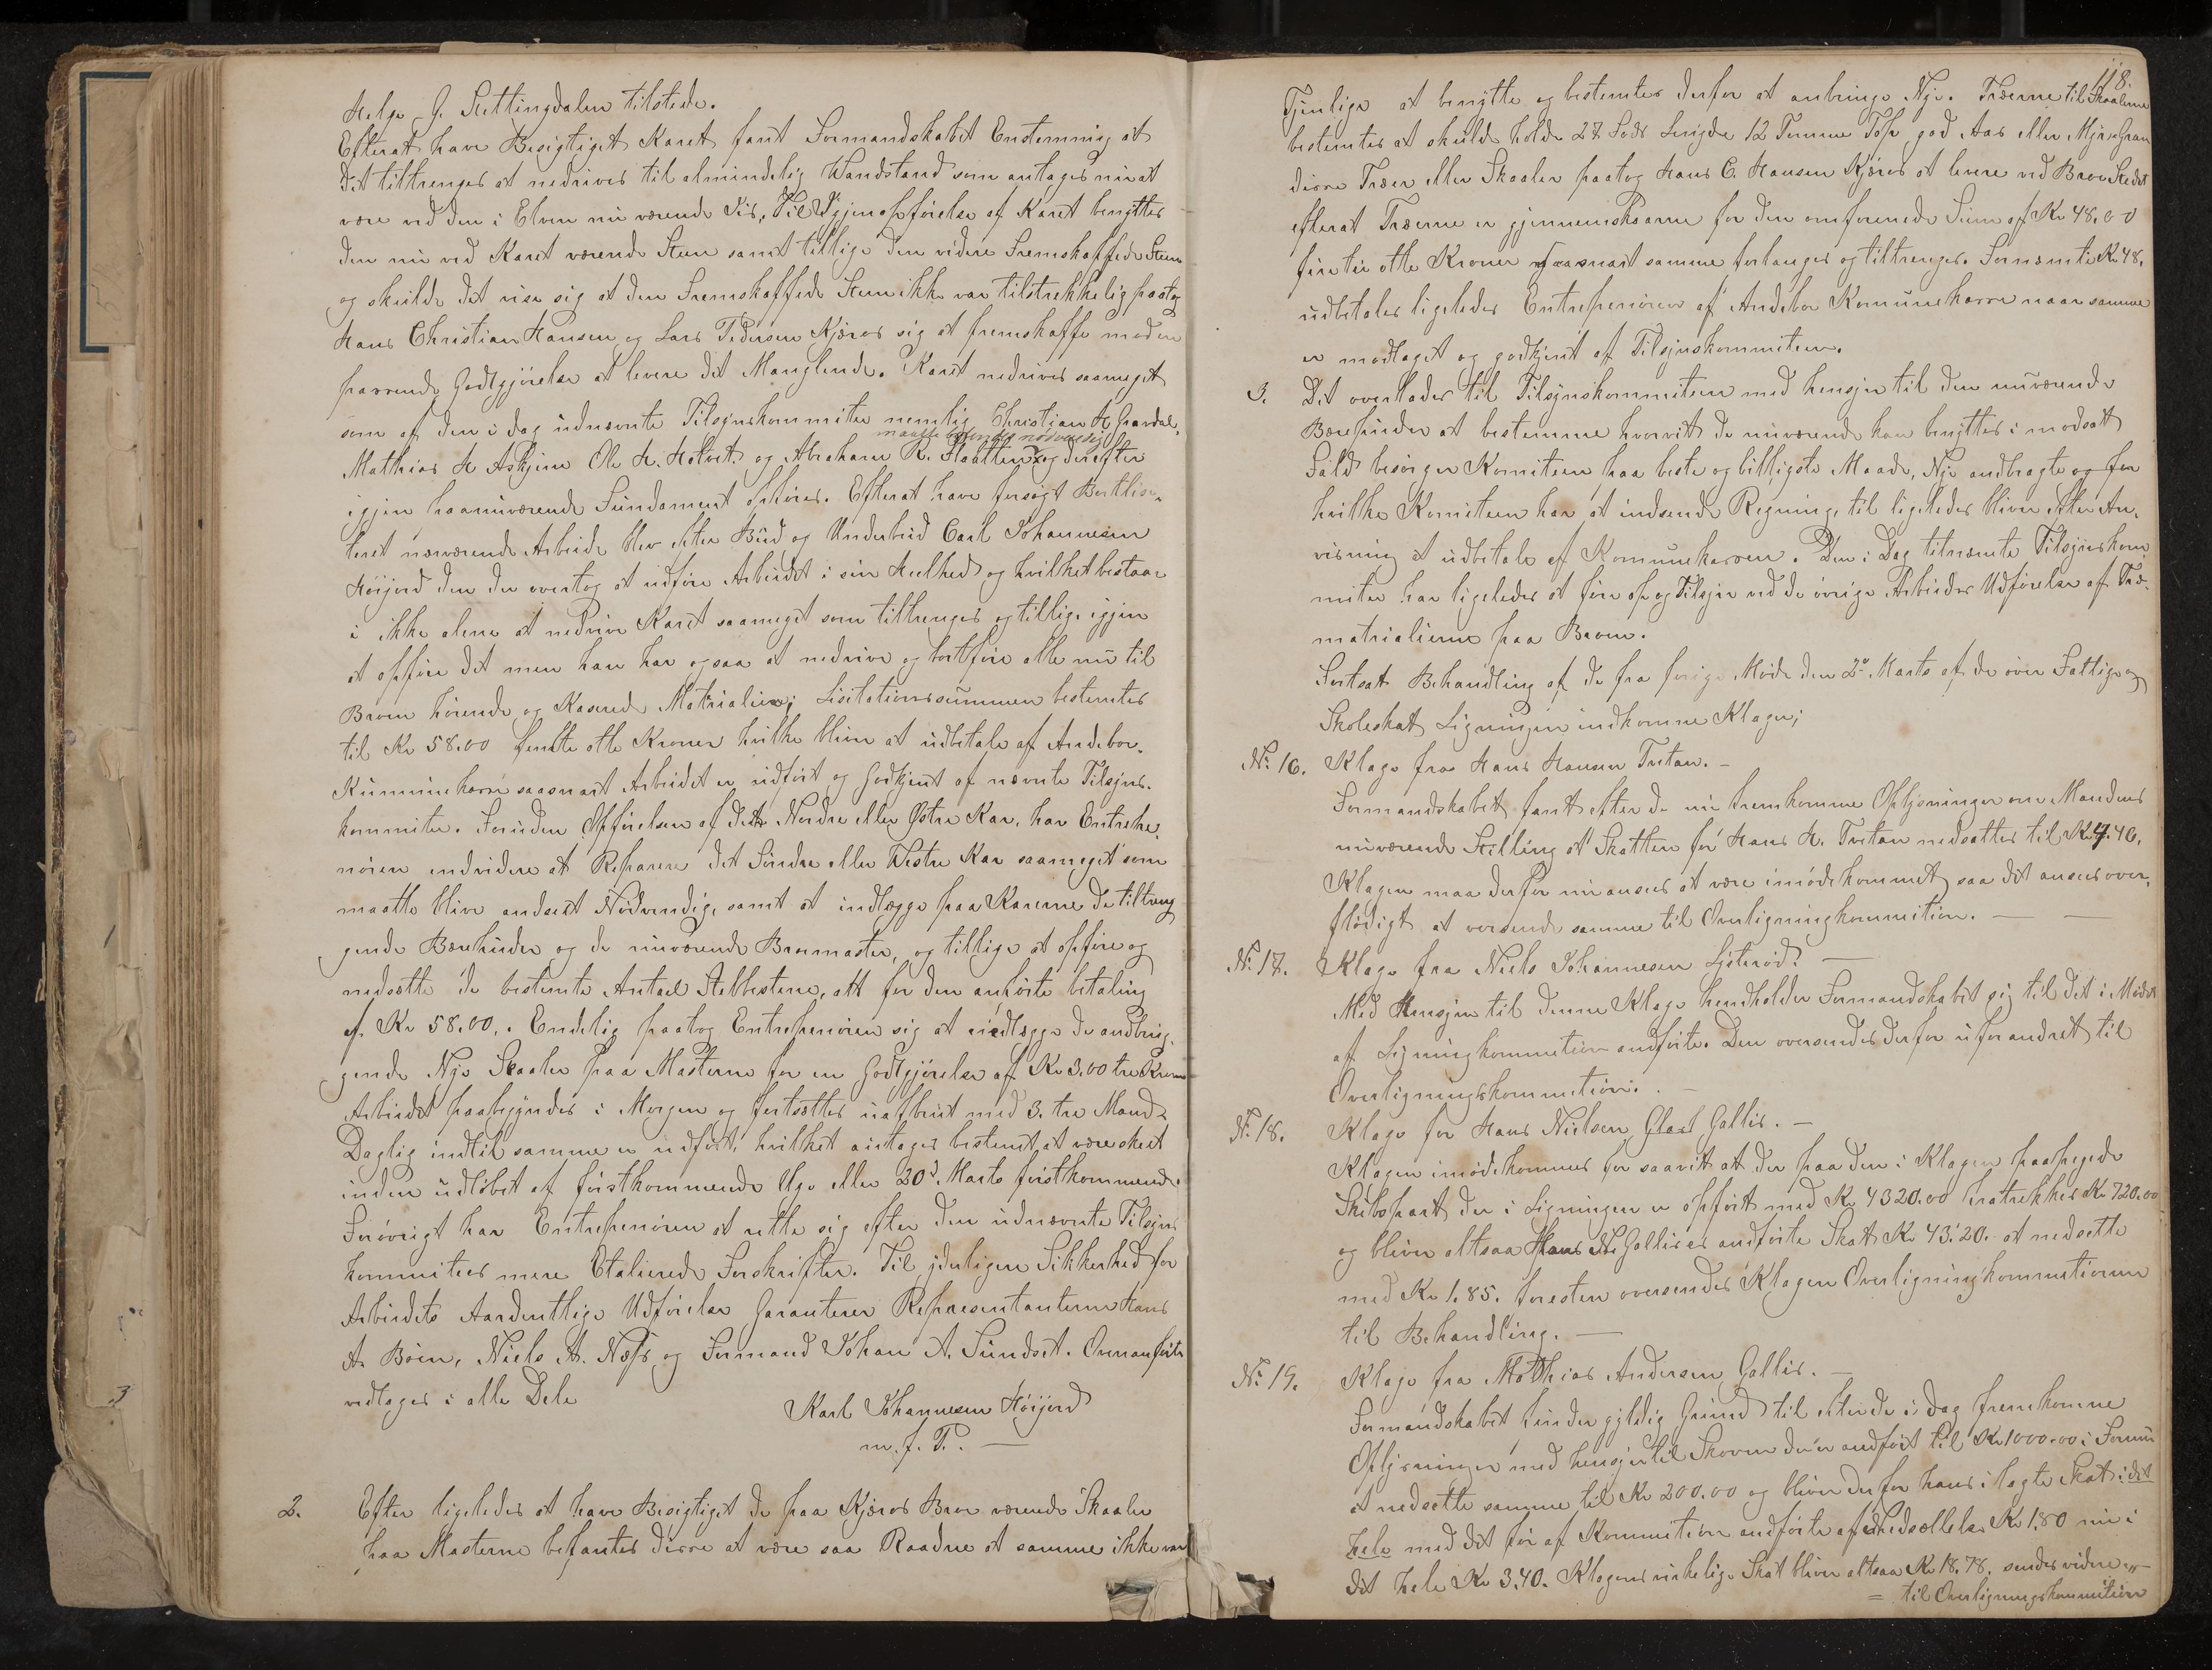 Helge G. Skttingdalen tilstede.
Efterat have Besigtiget Karet fant Formandskabet Enstemmig at
det tiltrenges at nedrives til almindelig Wandstand som antages nu at
være ved den i Elven nu værende Iis, Til Igjenopførelse af Karet benyttes
den nu ved Karet værende Steen samt tillige den videre Fremskaffede Steen
og skulde det vise sig at den Fremskaffede Steen ikke var tilstrekkelig paatog
Hans Christian Hansen og Lars Pedersen Kjæraas sig at fremskaffe mod en
passende Godtgjørelse at levere det Manglende. Karet nedrives saameget
som af den i dag udnævnte Tilsynskommitee nemlig Christian H Gravdal,
maatte befindes nødvendig
Mathias H Askjem Ole H. Holvet. og Abraham K. Flaatten og derefter
igjen paa nuværende Fundament opføres. Efterat have forsøgt Bortlise-
teret nærværende Arbeide blev efter Bud og Underbud Carl Johannesen
Høijord den der overtog at udføre Arbeidet i sin Heelhed og hvilket bestaar
i ikke alene at nedrive Karet saameget som tiltrenges og tillige igjen
at opføre det men han har ogsaa at nedrive og bortføre alle nu til
Broen hørende og Kaserede Matrialier; Lisitationssummen bestemtes
til Kr 58.00 femti otte Kroner hvilke bliver at udbetale af Andebo-
Kummunekasse saasnart Arbeidet er udført og Godkjent af nævnte Tilsyns-
kommitee. Foruden Opførelsen af dette Nordre eller Østre Kar, har Entrepe-
nøren endvidere at Reparere det Søndre eller Westre Kar saameget som
maatte blive anseet Nødvendig, samt at indlægge paa Karerne de tiltreng
gende Bærehuder og de nuværende Bromaster, og tillige at opføre og
nedsætte de bestemte Antael Stebbestene, alt for den anførte betaling
af Kr 58.00,. Endelig paatog Entrepenøren sig at indlægge de andbrin-
gende Nye Skaaler paa Masterne for en Godtgjørelse af Kr 3.00 tre Kroner
Arbeidet paabegyndes i Morgen og fortsættes uafbrudt med 3. tre Mand
Daglig indtil samme er udført, hvilket antages bestemt at være skeet
inden udløbet af førstkommende Uge eller 20de Marts førstkommende.
Forøvrigt har Entrepenøren at rette sig efter den udnævnte Tilsyns
kommitees mere Etalierede Forskrifter. Til yderligere Sikkerhed for
Arbeidets Aardentlige Udførelse Garanterer Representanterne Hans
A. Bøen, Niels A. Næss og Formand Johan A. Sundset. Ovenanførte
vedtages i alle Dele
Karl Johannesen Høijord
m. f. P. —
2. Efter ligeledes at have Besigtiget de paa Kjæraas Bro værende Skaaler
paa Masterne befantes disse at være saa Raadne at samme ikke var
118.
Tjenlige at benytte og bestemtes derfor at anbringe Nye. Træerne til Skaalerne
bestemtes at skulde holde 27 Fods Længde 12 Tomme Top god Aas eller Myre Gran
disse Træer eller Skaaler paatog Hans C. Hansen Kjæraas at levere ved Broe Stedet
efterat Træerne er gjennemskaarne for den omforenede Sum af Kr 48.00
førti otte Kroner saasnart samme forlanges og tiltrenges. Fornæmte Kr 48,
udbetales ligeledes Entrepenøren af Andebo Komunekasse naar samme
er modtaget og godkjent af Tilsynskommiteen.
3. Det overlades til Tilsynskommiteen med hensyn til den nuværende
Bærehuder at bestemme hvorvit de nuværende kan benyttes i modsatt
Fald besørger Komiteen paa beste og billigste Maade, Nye andbragte og for
hvilke Komiteen har at indsende Regning, til ligeledes bliver efter An-
visning at udbetale af Komunekassen. Den i Dag titnæmte Tilsynskom
mitee har ligeledes at føre op og Tilsyn ved de øvrige Arbeider Udførelse af Træ-
matrialierne paa Broen.
Fortsat Behandling af de fra forige Møde den 2de Marts af de over Fattig og
Skoleskat Ligningen indkomne Klager;
No. 16. Klage fra Hans Hansen Tvetan. —
Formandskabet fant efter de nu fremkomne Oplysninger om Mandens
nuværende Stilling at Skatten for Hans H. Tvetan nedsættes til Kr 4.40,
Klagen maa derfor nu anses at være imødekommet saa det ansees over-
flødigt at oversende samme til Overligningkommition. — —
No. 17. Klage fra Niels Johannesen Listerød? —
Med Hensyn til denne Klage henholder Formandskabet sig til det i Mødet
af Ligningkommition andførte. Den oversendes derfor uforandret til
Overligningskommition. . —
No. 18. Klage for Hans Nielsen Gallis. —
Klagen imødekommes for saavit at der paa den i Klagen paapegede
Skibspart der i Ligningen er opført med Kr 4320.00 fratrekkes Kr 720.00
og bliver altsaa Hans N. Gallises andførte Skat Kr 43.20. at nedsette
med Kr 1.85. foresten oversendes Klagen Overligningkommitionen
til Behandling. —
No. 19. Klage fra Mathias Andersen Gallis. —
Formandskabet finder gyldig Grund til efter de i Dag fremkomne
Oplysninger med hensyn til Skoven der er andført til Kr 1000.00 i Formu
at nedsette samme til Kr 200.00 og bliver derfor hans ilagte Skat i det
hele med det før af Kommition andførte af Nedsættelse Kr 1.80 nu i
det hele Kr 3.40. Klagerens virkelige Skat bliver altsaa Kr 18.78. sendes videre
= til Overligningskommition